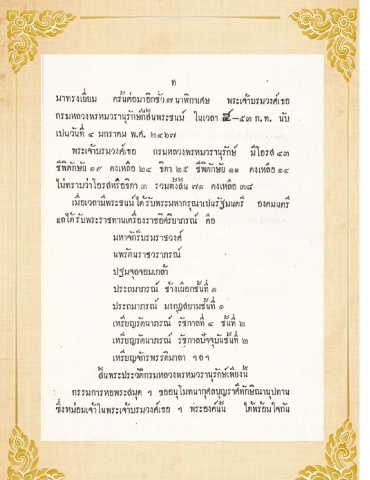 ท
มาทรงเยี่ยม ครั้นต่อมาอีกชั่ว ๗ นาฬิกาเศษ พระเจ้าบรมวงศ์เธอ
กรมหลวงพรหมวรานุรักษ์ก็สิ้นพระชนม์ ในเวลา ๘-๕๓ ก.ท. นับ
เปนวันที่ ๔ มกราคม พ.ศ. ๒๔๖๗
พระเจ้าบรมวงศ์เธอ กรมหลวงพรหมวรานุรักษ์ มีโอรส ๔๓
ชีพิตักษัย ๑๙ คงเหลือ ๒๔ ธิดา ๒๕ ชีพิตักษัย ๑๑ คงเหลือ ๑๔
ไม่ทราบว่าโอรสหรือธิดา ๓ รวมทั้งสิ้น ๗๑ คงเหลือ ๓๘
เมื่อเวลามีพระชนม์ ได้รับพระมหากรุณาเปนรัฐมนตรี องคมนตรี
แลได้รับพระราชทานเครื่องราชอิศริยาภรณ์ คือ
มหาจักรีบรมราชวงศ์
นพรัตนราชวราภรณ์
ปฐมจุลจอมเกล้า
ประถมาภรณ์ ช้างเผือกชั้นที่ ๑
ประถมาภรณ์ มงกุฎสยามชั้นที่ ๑
เหรียญรัตนาภรณ์ รัชกาลที่ ๔ ชั้นที่ ๒
เหรียญรัตนาภรณ์ รัชกาลปัจจุบันชั้นที่ ๒
เหรียญจักรพรรดิมาลา ฯลฯ
สิ้นพระประวัติกรมหลวงพรหมวรานุรักษ์เพียงนี้
กรรมการหอพระสมุด ฯ ขออนุโมทนากุศลบุญราศีทักษิณานุปทาน
ซึ่งหม่อมเจ้าในพระเจ้าบรมวงศ์เธอ ฯ พระองค์นั้น ได้พร้อมใจกัน